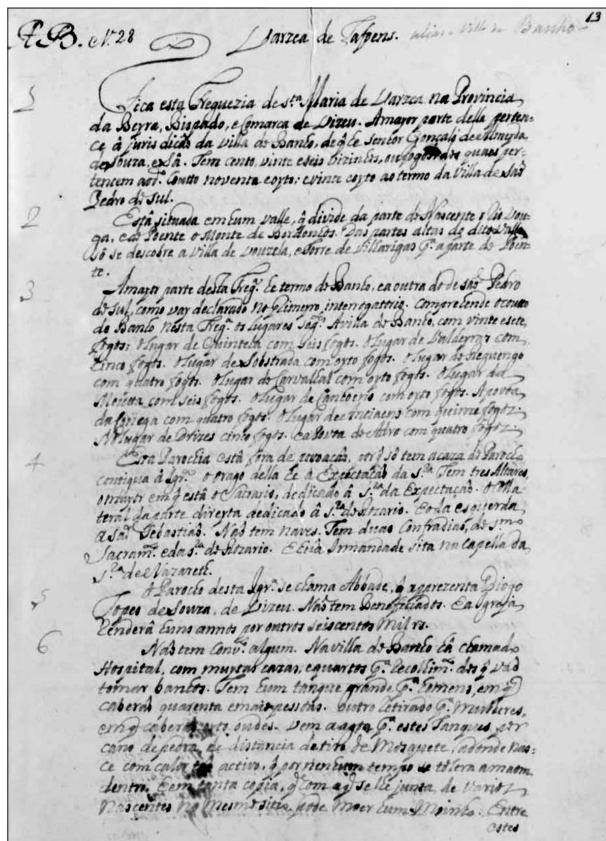 13
Æ B. N.º 28 Varzea de Tafoens. alias Villa do Banho
1 Fica esta Freguezia de S.ta Maria de Varzea na Provincia
da Beyra, Bispado, e Comarca de Vizeu. A mayor parte della perten-
ce á jurisdição da Villa do Banho, de q̃ he Senhor Gonçalo de Almeyda
de Souza, e Sá. Tem cento, vinte e seis vizinhos, ou fogos dos quaes per-
tencem ao d.º Coutto noventa e oyto: e vinte e oyto ao termo da Villa de São
Pedro do Sul.
2 Está situada em hum valle, q̃ divide da parte do Nascente o Rio Vou-
ga, e do Poente o Monte de Bordonhos. Das partes altas do dito Valle
só se descobre a Villa de Vouzela, e Torre de Villarigas p.ª a parte do Poen-
te.
3 A mayor parte desta Freg.ª he termo do Banho, e a outra do de São Pedro
do Sul, como vay declarado no primeiro interrogattrio. Comprehende o coutto
do Banho nesta Freg.ª os lugares seg.tes A Villa do Banho, com vinte e sete
fogos: O lugar de Quintela com seis fogos. O lugar de Valderros com
cinco fogos. O lugar de Sobstrada com oyto fogos. O lugar do
com quatro fogos. O lugar do Carvalhal com oyto fogos. O lugar da
com seis fogos. O lugar de com oyto fogos. A povoa
da com quatro fogos. O lugar de com quinze fogos
No lugar de Drizes cinco fogos. E a Povoa do Adro com quatro fogos
4 Esta Parochia está fora de povoação, só tem a caza do Paroco
contigua á Igr.ª o orago della he a Expectação da S.ra Tem tres Altares,
o mayor em q̃ está o Sacrario, dedicado á S.ra da Expectação. O Colla-
teral da parte direyta dedicado á S.ra do Rozario. E o da esquerda
a São Sebastião. Não tem naves. Tem duas Confradias, do S.mo
Sacram.to e da S.ra do Rozario. E huã Irmandade sita na Capella da
S.ra de Nazareth.
5 O Parocho desta Igr.ª se chama Abbade, q̃ reprezenta Diogo
Lopes de Souza, de Vizeu. Não tem Beneficiados. E a Igreja
Renderá huns annos por outros seiscentos mil rs.
6 Não tem Conv.to algum. Na villa do Banho há chamado
Hospital, com muytas cazas, e quartos p.ª Recolhim.to dos q̃ vão
tomar banhos. Tem hum tanque grande p.ª homens, em q̃
caberão quarenta e mais pessoas. Outro Retirado p.ª Mulheres,
em q̃ caberão oyto, ou dés. Vem a agoa p.ª estes Tanques, por
cano de pedra, de distancia de tiro de Mosquete, adonde nas-
ce com calor tão activo, q̃ por nenhum tempo se tolera a mão
dentro, e em tanta copia, q̃ com a q̃ se lhe junta de varios
Nascentes no mesmo sitio, pode moer hum Moinho. Entre
estes